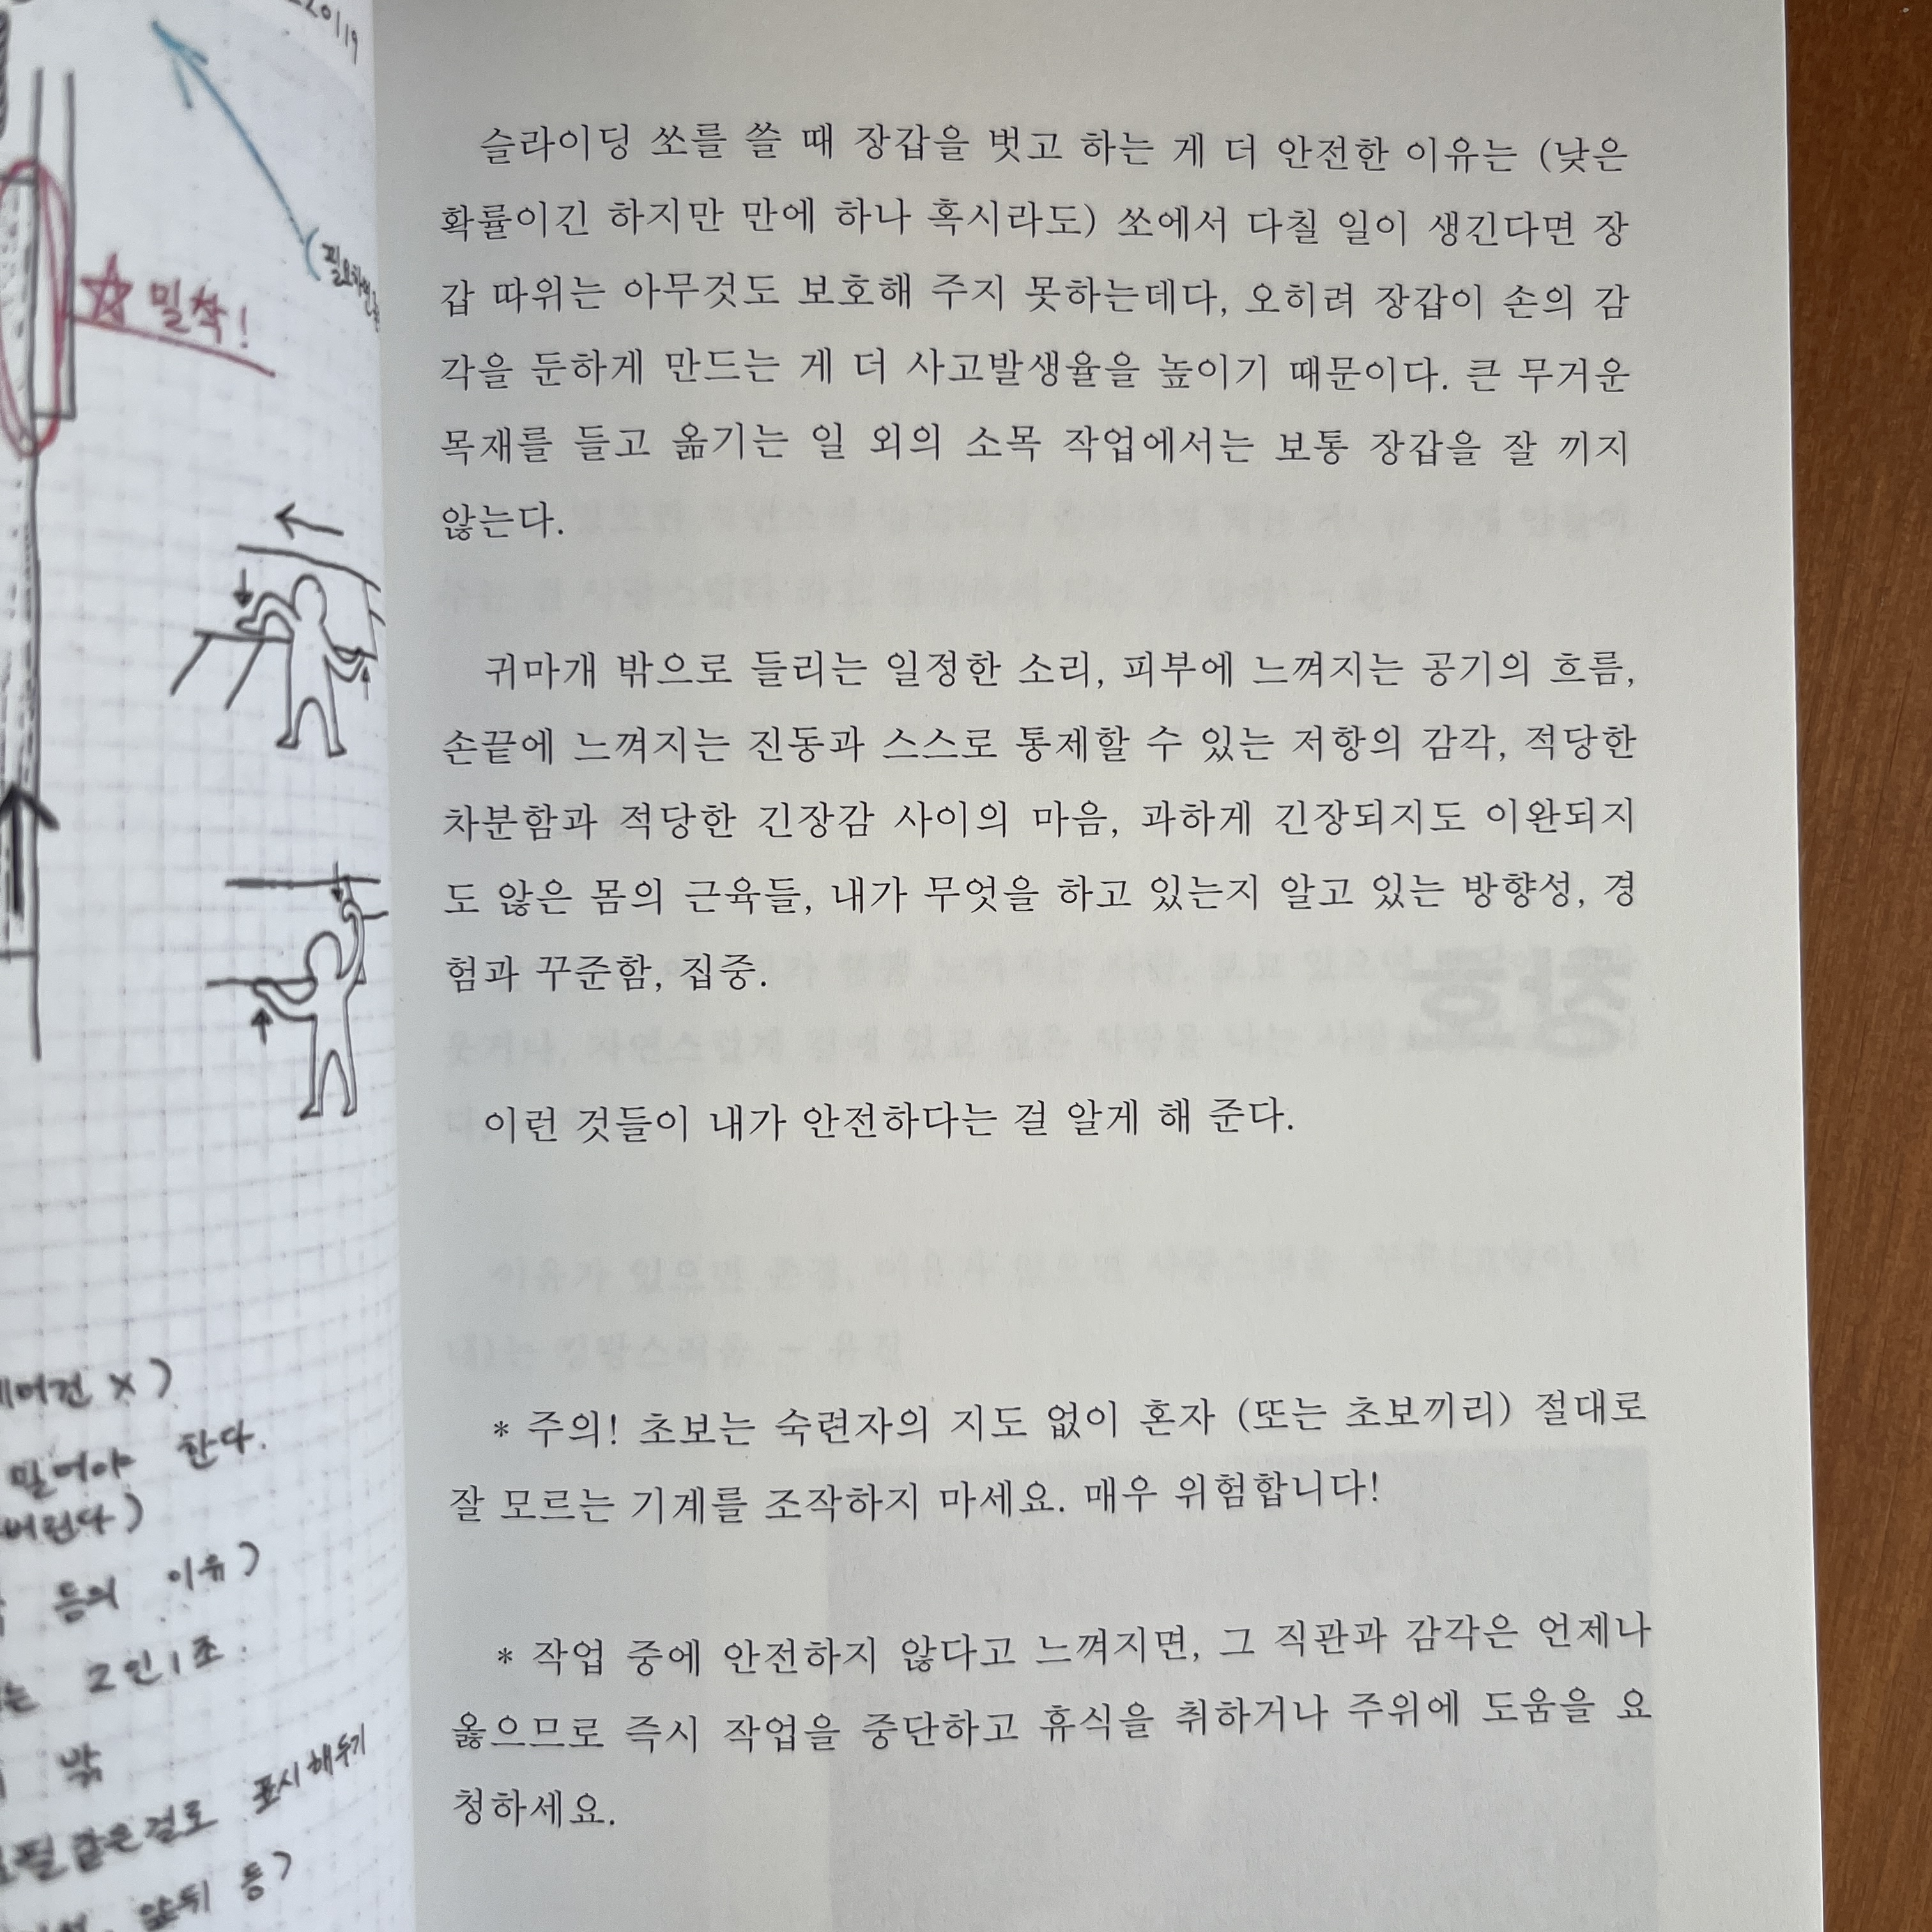 2019
(필요하면
☆ 밀착!
X)
밀어야 한다.
버린다)
등의 이유)
는 2인1조.
밖
필 같은걸로 표시해두기
앞뒤 등)
슬라이딩 쏘를 쓸 때 장갑을 벗고 하는 게 더 안전한 이유는 (낮은
확률이긴 하지만 만에 하나 혹시라도) 쏘에서 다칠 일이 생긴다면 장
갑 따위는 아무것도 보호해 주지 못하는데다, 오히려 장갑이 손의 감
각을 둔하게 만드는 게 더 사고발생율을 높이기 때문이다. 큰 무거운
목재를 들고 옮기는 일 외의 소목 작업에서는 보통 장갑을 잘 끼지
않는다.
귀마개 밖으로 들리는 일정한 소리, 피부에 느껴지는 공기의 흐름,
손끝에 느껴지는 진동과 스스로 통제할 수 있는 저항의 감각, 적당한
차분함과 적당한 긴장감 사이의 마음, 과하게 긴장되지도 이완되지
도 않은 몸의 근육들, 내가 무엇을 하고 있는지 알고 있는 방향성, 경
험과 꾸준함, 집중.
이런 것들이 내가 안전하다는 걸 알게 해 준다.
* 주의! 초보는 숙련자의 지도 없이 혼자 (또는 초보끼리) 절대로
잘 모르는 기계를 조작하지 마세요. 매우 위험합니다!
* 작업 중에 안전하지 않다고 느껴지면, 그 직관과 감각은 언제나
옳으므로 즉시 작업을 중단하고 휴식을 취하거나 주위에 도움을 요
청하세요.